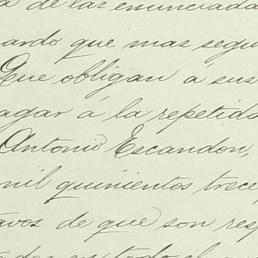 de las enunciada
ardo que mas segu
Que obligan a sus
agar á la repetida
Antonio Escandon,
mil quinientos trece
avos de que son res